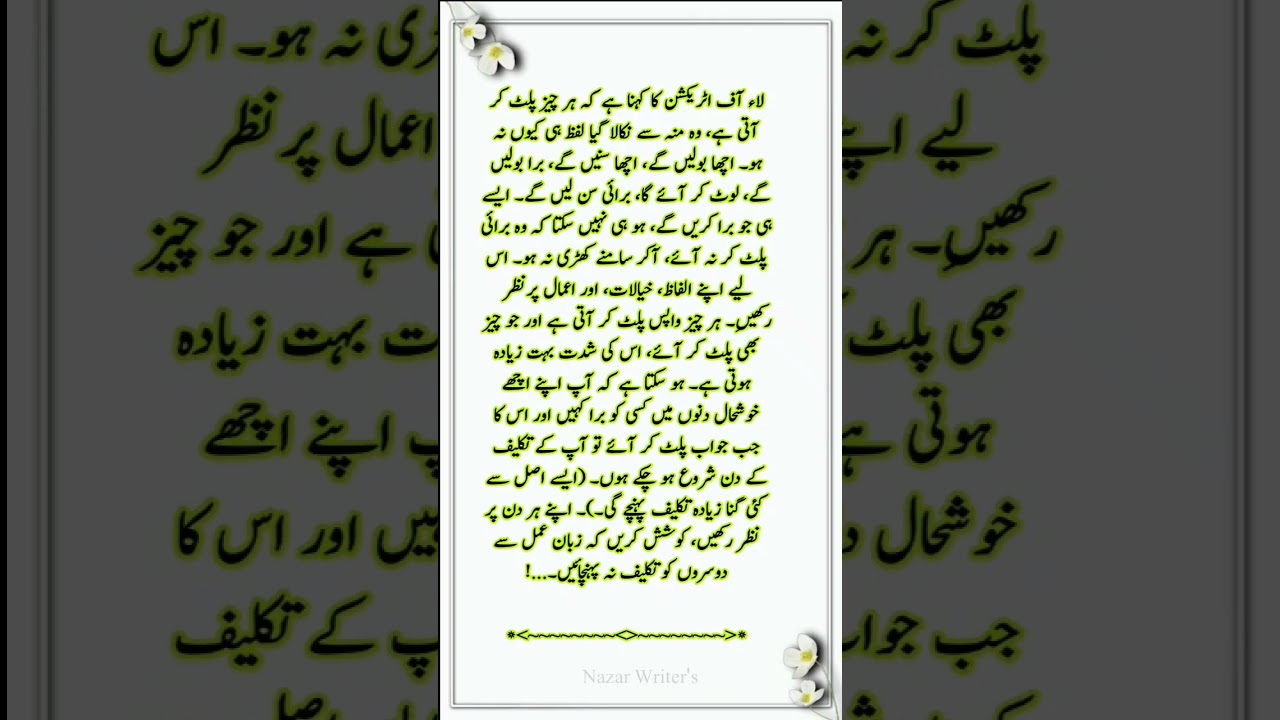 لاء آف اٹریکشن کا کہنا ہے کہ ہر چیز پلٹ کر
آتی ہے، وہ منہ سے نکالا گیا لفظ ہی کیوں نہ
ہو۔ اچھا بولیں گے، اچھا سنیں گے، برا بولیں
گے، لوٹ کر آئے گا، برائی سن لیں گے۔ ایسے
ہی جو برا کریں گے، ہو ہی نہیں سکتا کہ وہ برائی
پلٹ کر نہ آئے، آکر سامنے کھڑی نہ ہو۔ اس
لیے اپنے الفاظ، خیالات، اور اعمال پر نظر
رکھیںِ۔ ہر چیز واپس پلٹ کر آتی ہے اور جو چیز
بھی پلٹ کر آئے، اس کی شدت بہت زیادہ
ہوتی ہے۔ ہو سکتا ہے کہ آپ اپنے اچھے
خوشحال دنوں میں کسی کو برا کہیں اور اس کا
جب جواب پلٹ کر آئے تو آپ کے تکلیف
کے دن شروع ہو چکے ہوں۔ (ایسے اصل سے
کئی گنا زیادہ تکلیف پہنچے گی۔)۔ اپنے ہر دن پر
نظر رکھیں، کوشش کریں کہ زبان عمل سے
دوسروں کو تکلیف نہ پہنچائیں۔...!
*<~~~~~~~~<>~~~~~~~~>*
Nazar Writer's